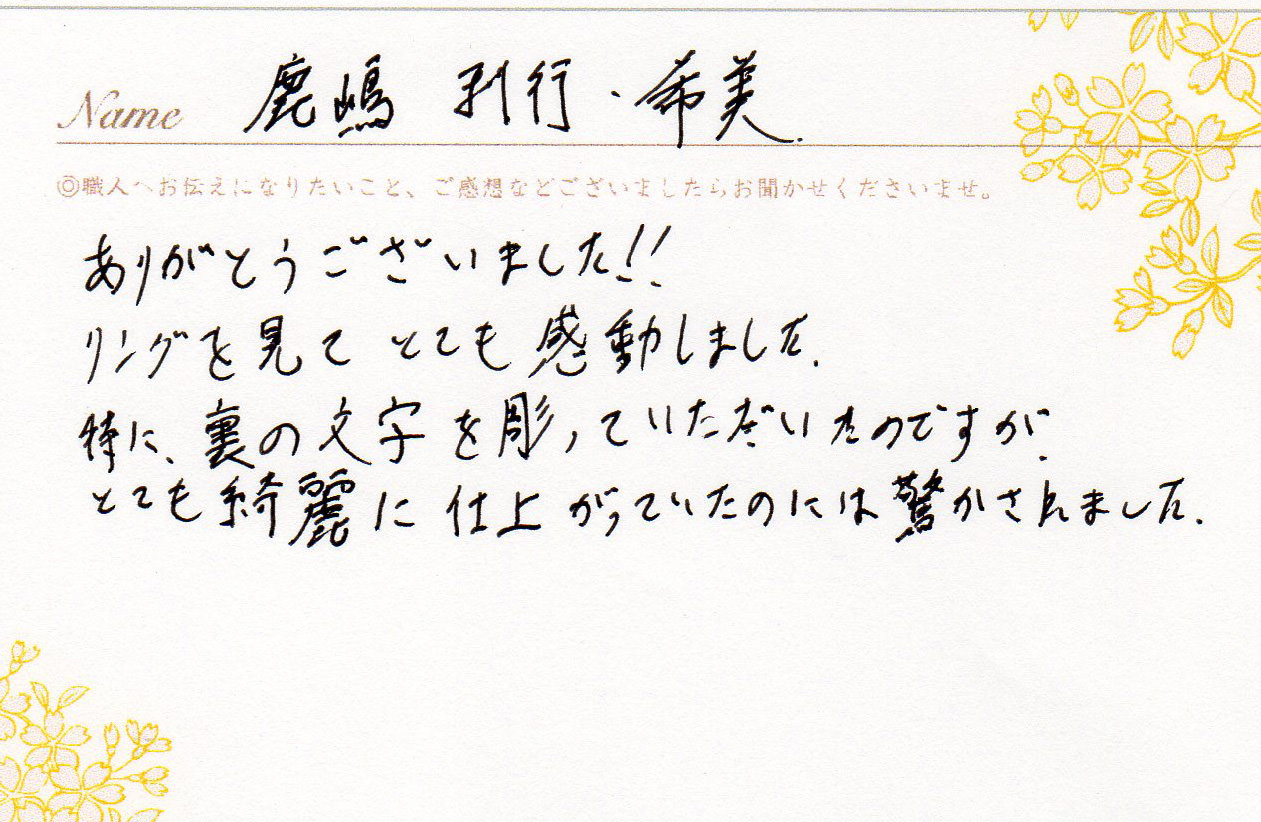 Name 鹿嶋 利行・希美
◎職人へお伝えになりたいこと、ご感想などございましたらお聞かせくださいませ。
ありがとうございました!!
リングを見てとても感動しました.
特に、裏の文字を彫っていただいたのですが、
とても綺麗に仕上がっていたのには驚かされました.